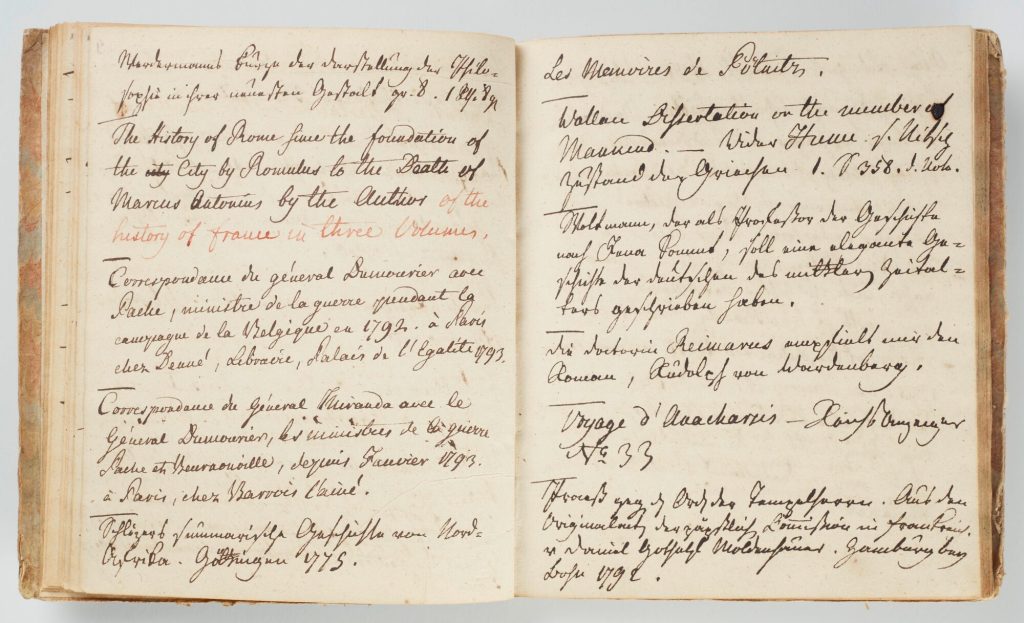 Werdermanns Kürze der Darstellung der Philo-
sophie in ihrer neuesten Gestalt gr. 8. 1
The History of Rome since the foundation of
the city City by Romulus to the Death of
Marcus Antonius by the Author of the
history of france in three Volumes.
Correspondance du général Dumourier avec
Pache, ministre de la guerre pendant la
campagne de la Belgique en 1792. à Paris
chez Denné, Librairie, Palais de l'Egalité 1793.
Correspondance du Général Miranda avec le
Général Dumourier, les ministres de la guerre
Pache et Beurnonville, depuis Janvier 1793.
à Paris, chez Barrois l'ainé.
Schlözers summarische Geschichte von Nord-
Afrika. Göttingen 1775.
Les Memoires de Pölnitz.
Wallace Dissertation on the number of
Mankind. — Wider Hume. s.
Zustand der Griechen 1. S 358. d.
Woltmann, der als Professor der Geschichte
nach Jena kommt, soll eine elegante Ge-
schichte der deutschen des mittlern Zeital-
ters geschrieben haben.
Die doctorin Reimarus empfielt mir den
Roman, Rudolph von Wardenberg.
Voyage d'Anacharsis — Anzeiger
No 33
Proceß geg d Ord der Tempelherrn. Aus den
Originalact der päpstlich Comission in frankreich
v Daniel Gotthilf Moldenhauer. Hamburg bey
Bohn 1792.